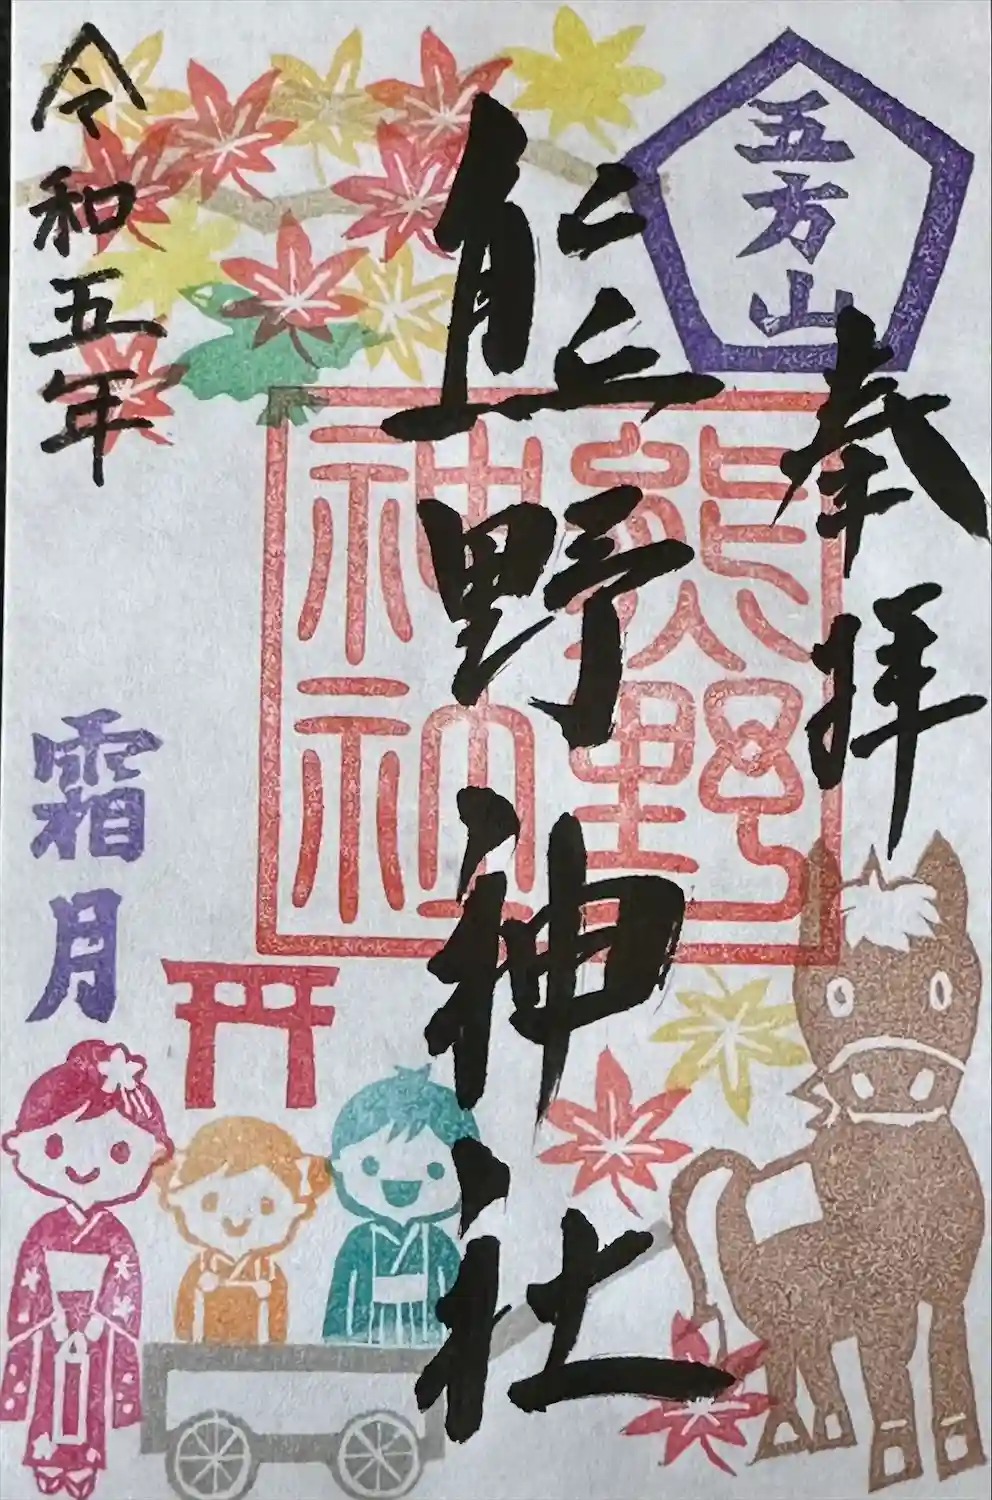 五方山
奉拝
熊野神社
熊野
神社
令和五年
霜月